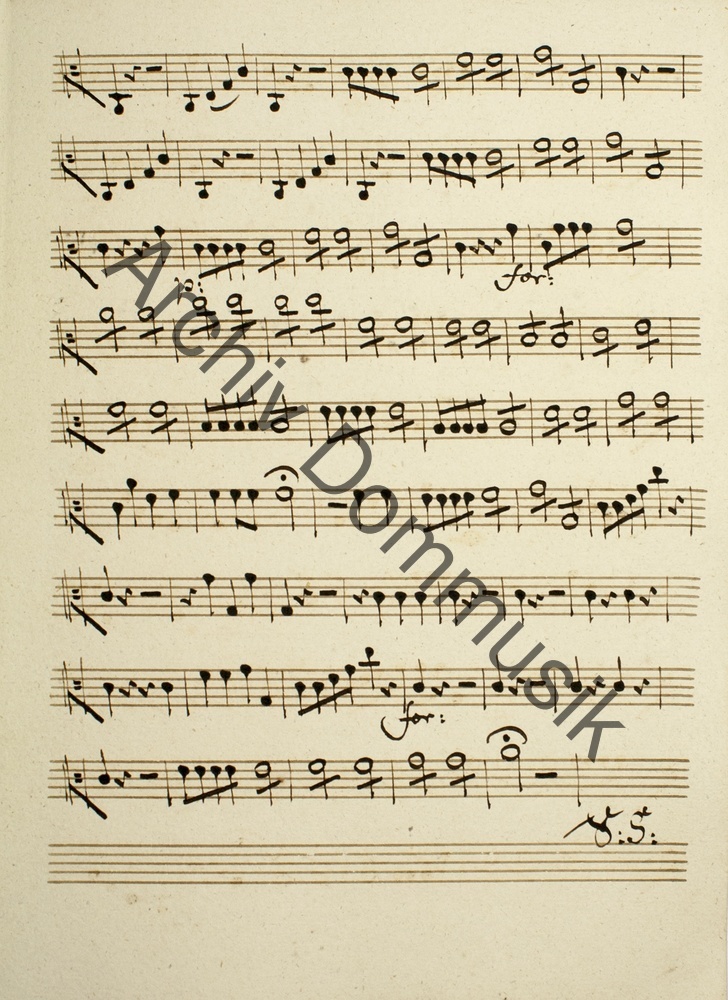 p: for:
for:
V: S:
Archiv Dommusik